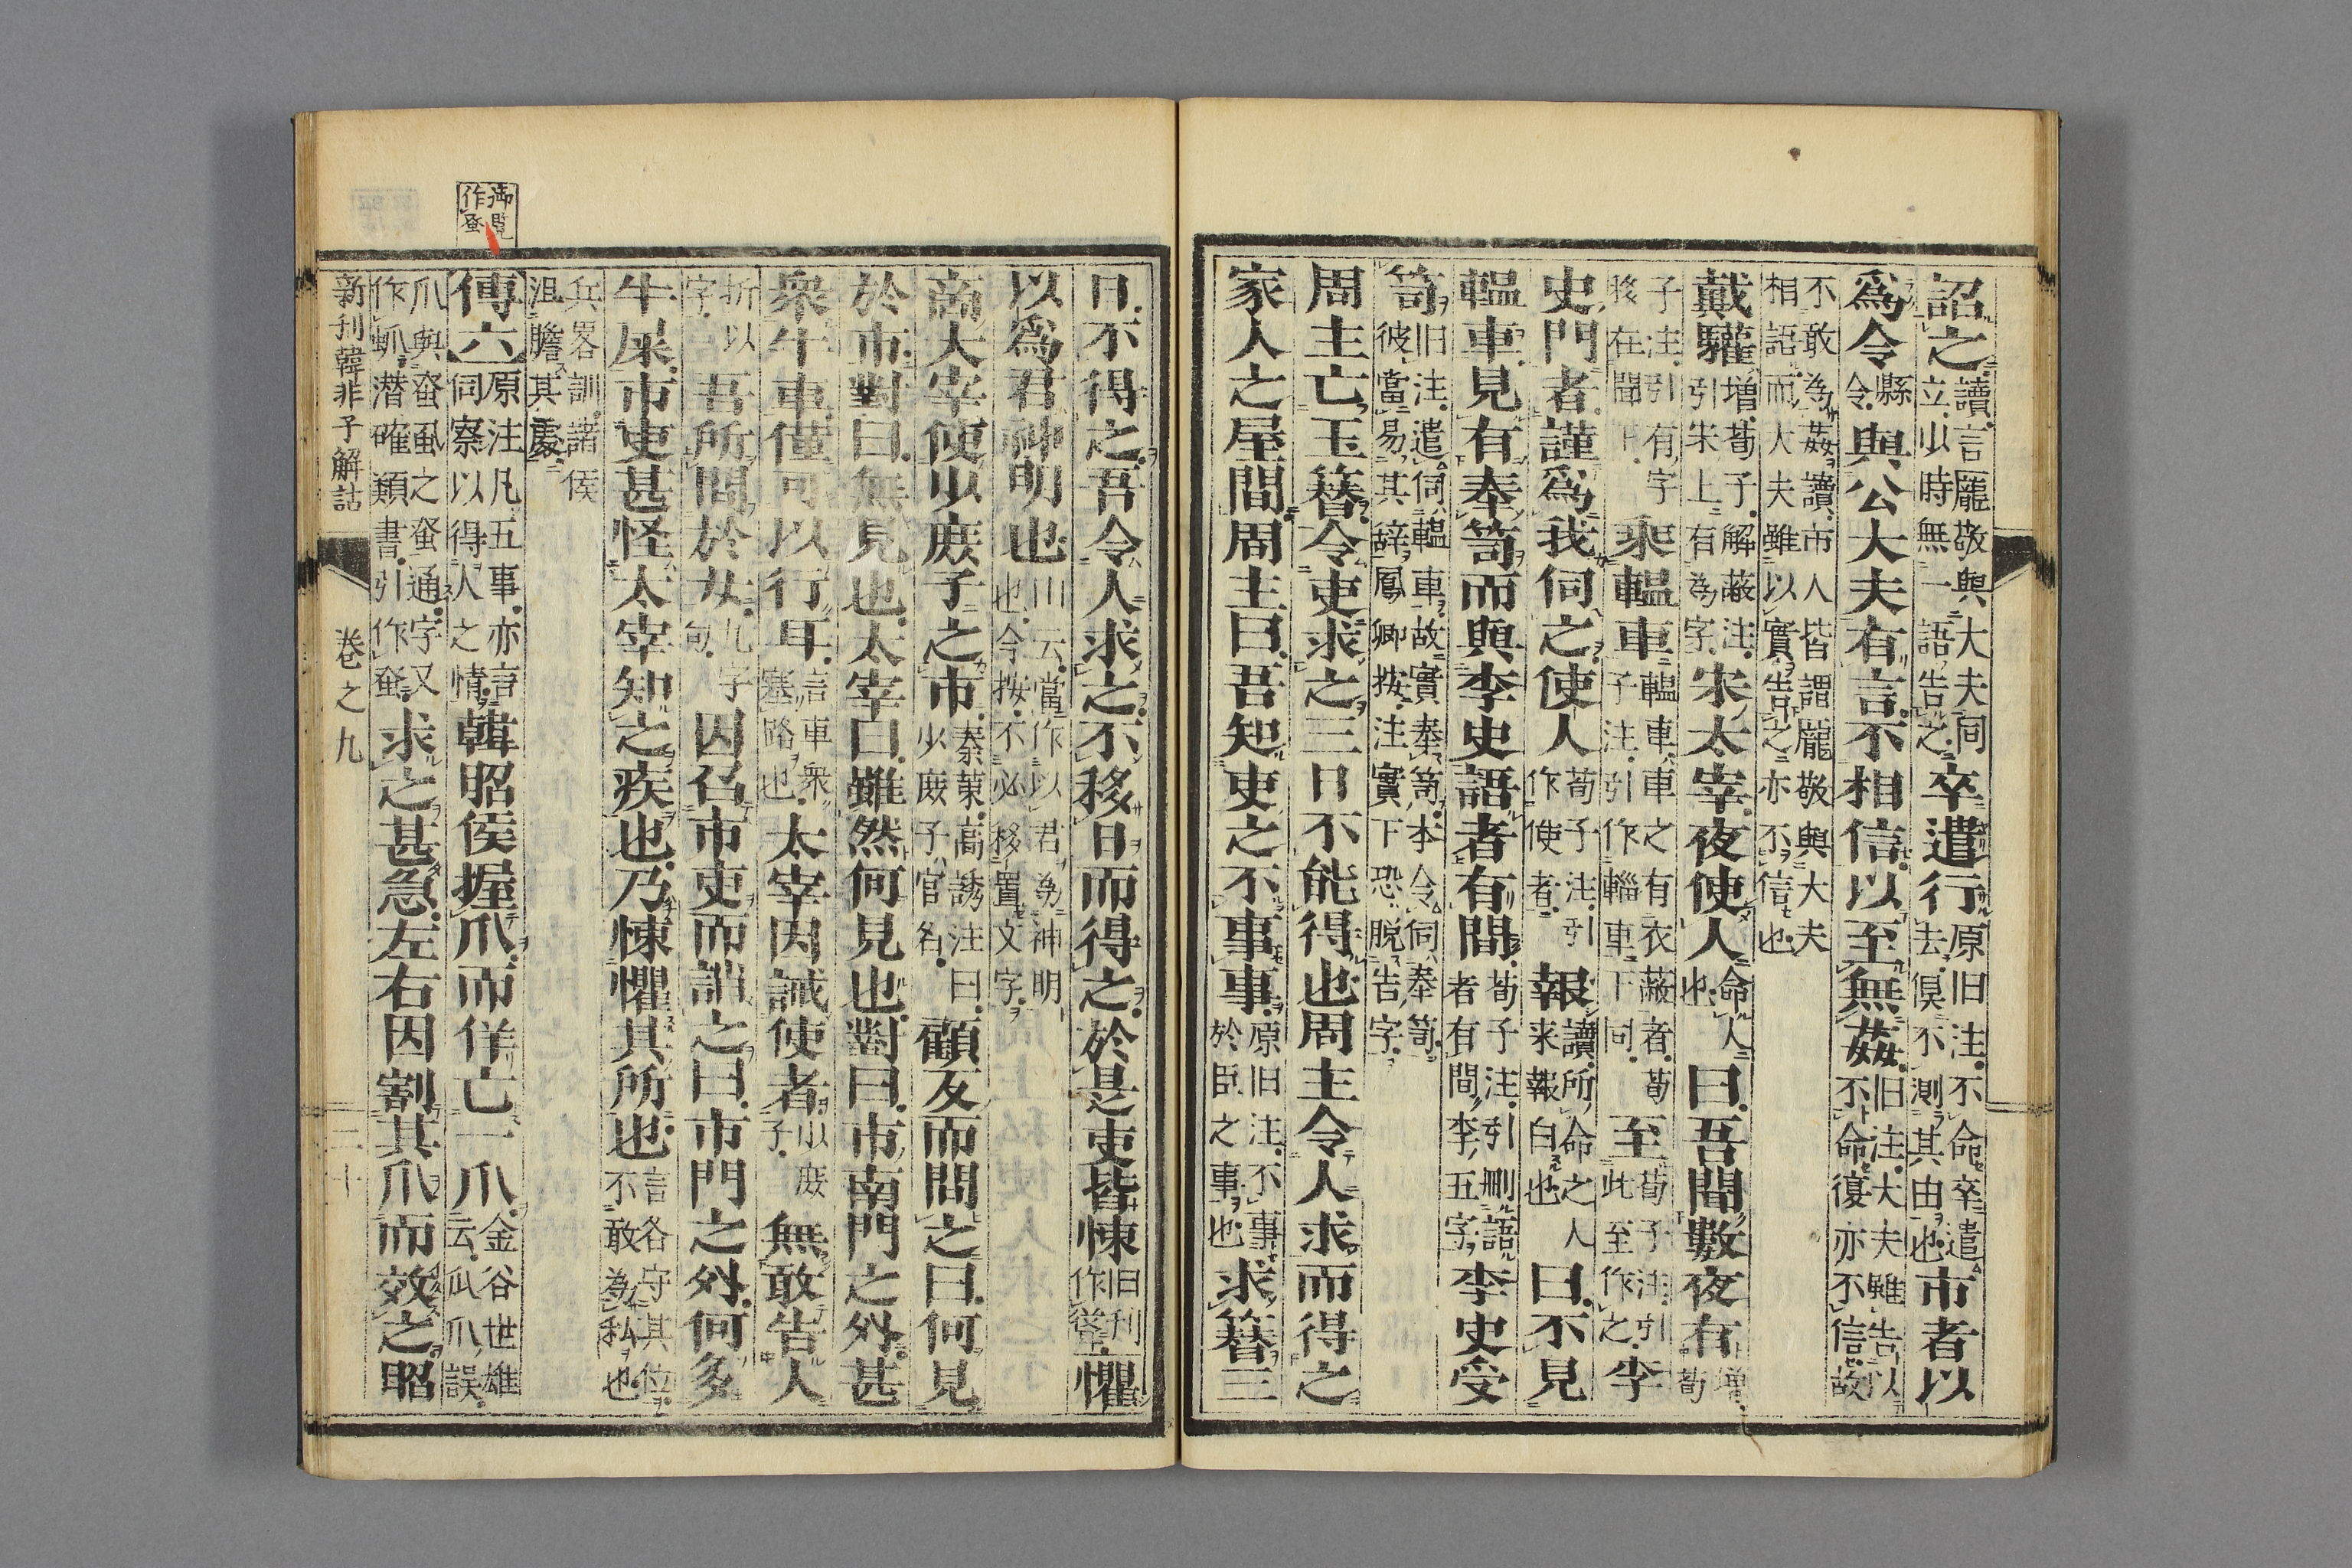 詔之讀言龐敬與大夫同立少時無一語告之卒遣行原旧注不命卒遣去俱不測其由也市者以
爲令縣令與公大夫有言不相信以至無姦旧注大夫雖告以不命復亦不信故
不敢為姦讀市人皆謂龐敬與大夫相語而大夫雖以實告之亦不信也
戴驩增荀子解蔽注引宋上有為字宋太宰夜使人命人也曰吾聞數夜有增荀
子注引有字移在聞下乘轀車轀車車之有衣蔽者荀子注引作輜車下同至荀子注引此至作之李
史門者謹爲我伺之使人荀子注引作使者報讀所命之人来報白也曰不見
轀車見有奉笥而與李史語者有間荀子注引刪語者有間李五字李史受
笥旧注遣伺轀車故實奉笥本令伺奉笥彼當易其辞鳳卿按注實下恐脱告字
周主亡玉簪令吏求之三日不能得也周主令人求而得之
家人之屋間周主曰吾知吏之不事事原旧注不事於臣之事也求簪三
日不得之吾令人求之不移日而得之於是吏皆悚旧刊作聳懼
以爲君神明也川云當作以君為神明也今按不必移置文字
商大宰使少庶子之市秦策高誘注曰少庶子官名顧反而問之曰何見
於市對曰無見也太宰曰雖然何見也對曰市南門之外甚
衆牛車僅可以行耳言車衆塞路也太宰因誡使者少庶子無敢告人
折以字吾所問於女九字句因召市吏而誚之曰市門之外何多
牛屎市吏甚怪太宰知之疾也乃悚懼其所也言各守其位不敢為私也
兵畧訓諸侯沮膽其處
傳六原注凡五事亦言伺察以得人之情韓昭侯握爪而佯亡一爪金谷世雄云瓜爪誤
爪與蚤虱之蚤通字又作蚎潜確類書引作蚤求之甚急左右因割其爪而效之昭
新刊韓非子解詁
卷之九
二十
御覧作蚤